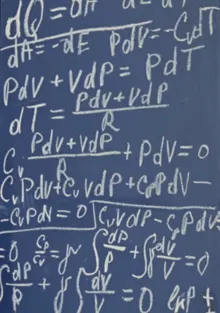 dQ = dA +
dA = -dE PdV = -CvdT
PdV + VdP = PdT
dT = PdV + VdP / R
Cv PdV + VdP / R + PdV = 0
CvPdV + CvVdP + CpPdV -
- CvPdV = 0 CvVdP - CpPdV =
= 0 Cp/Cv = γ ∫ dP/P + ∫γ dV/V = 0
∫ dP/P + γ ∫ dV/V = 0 ln P +